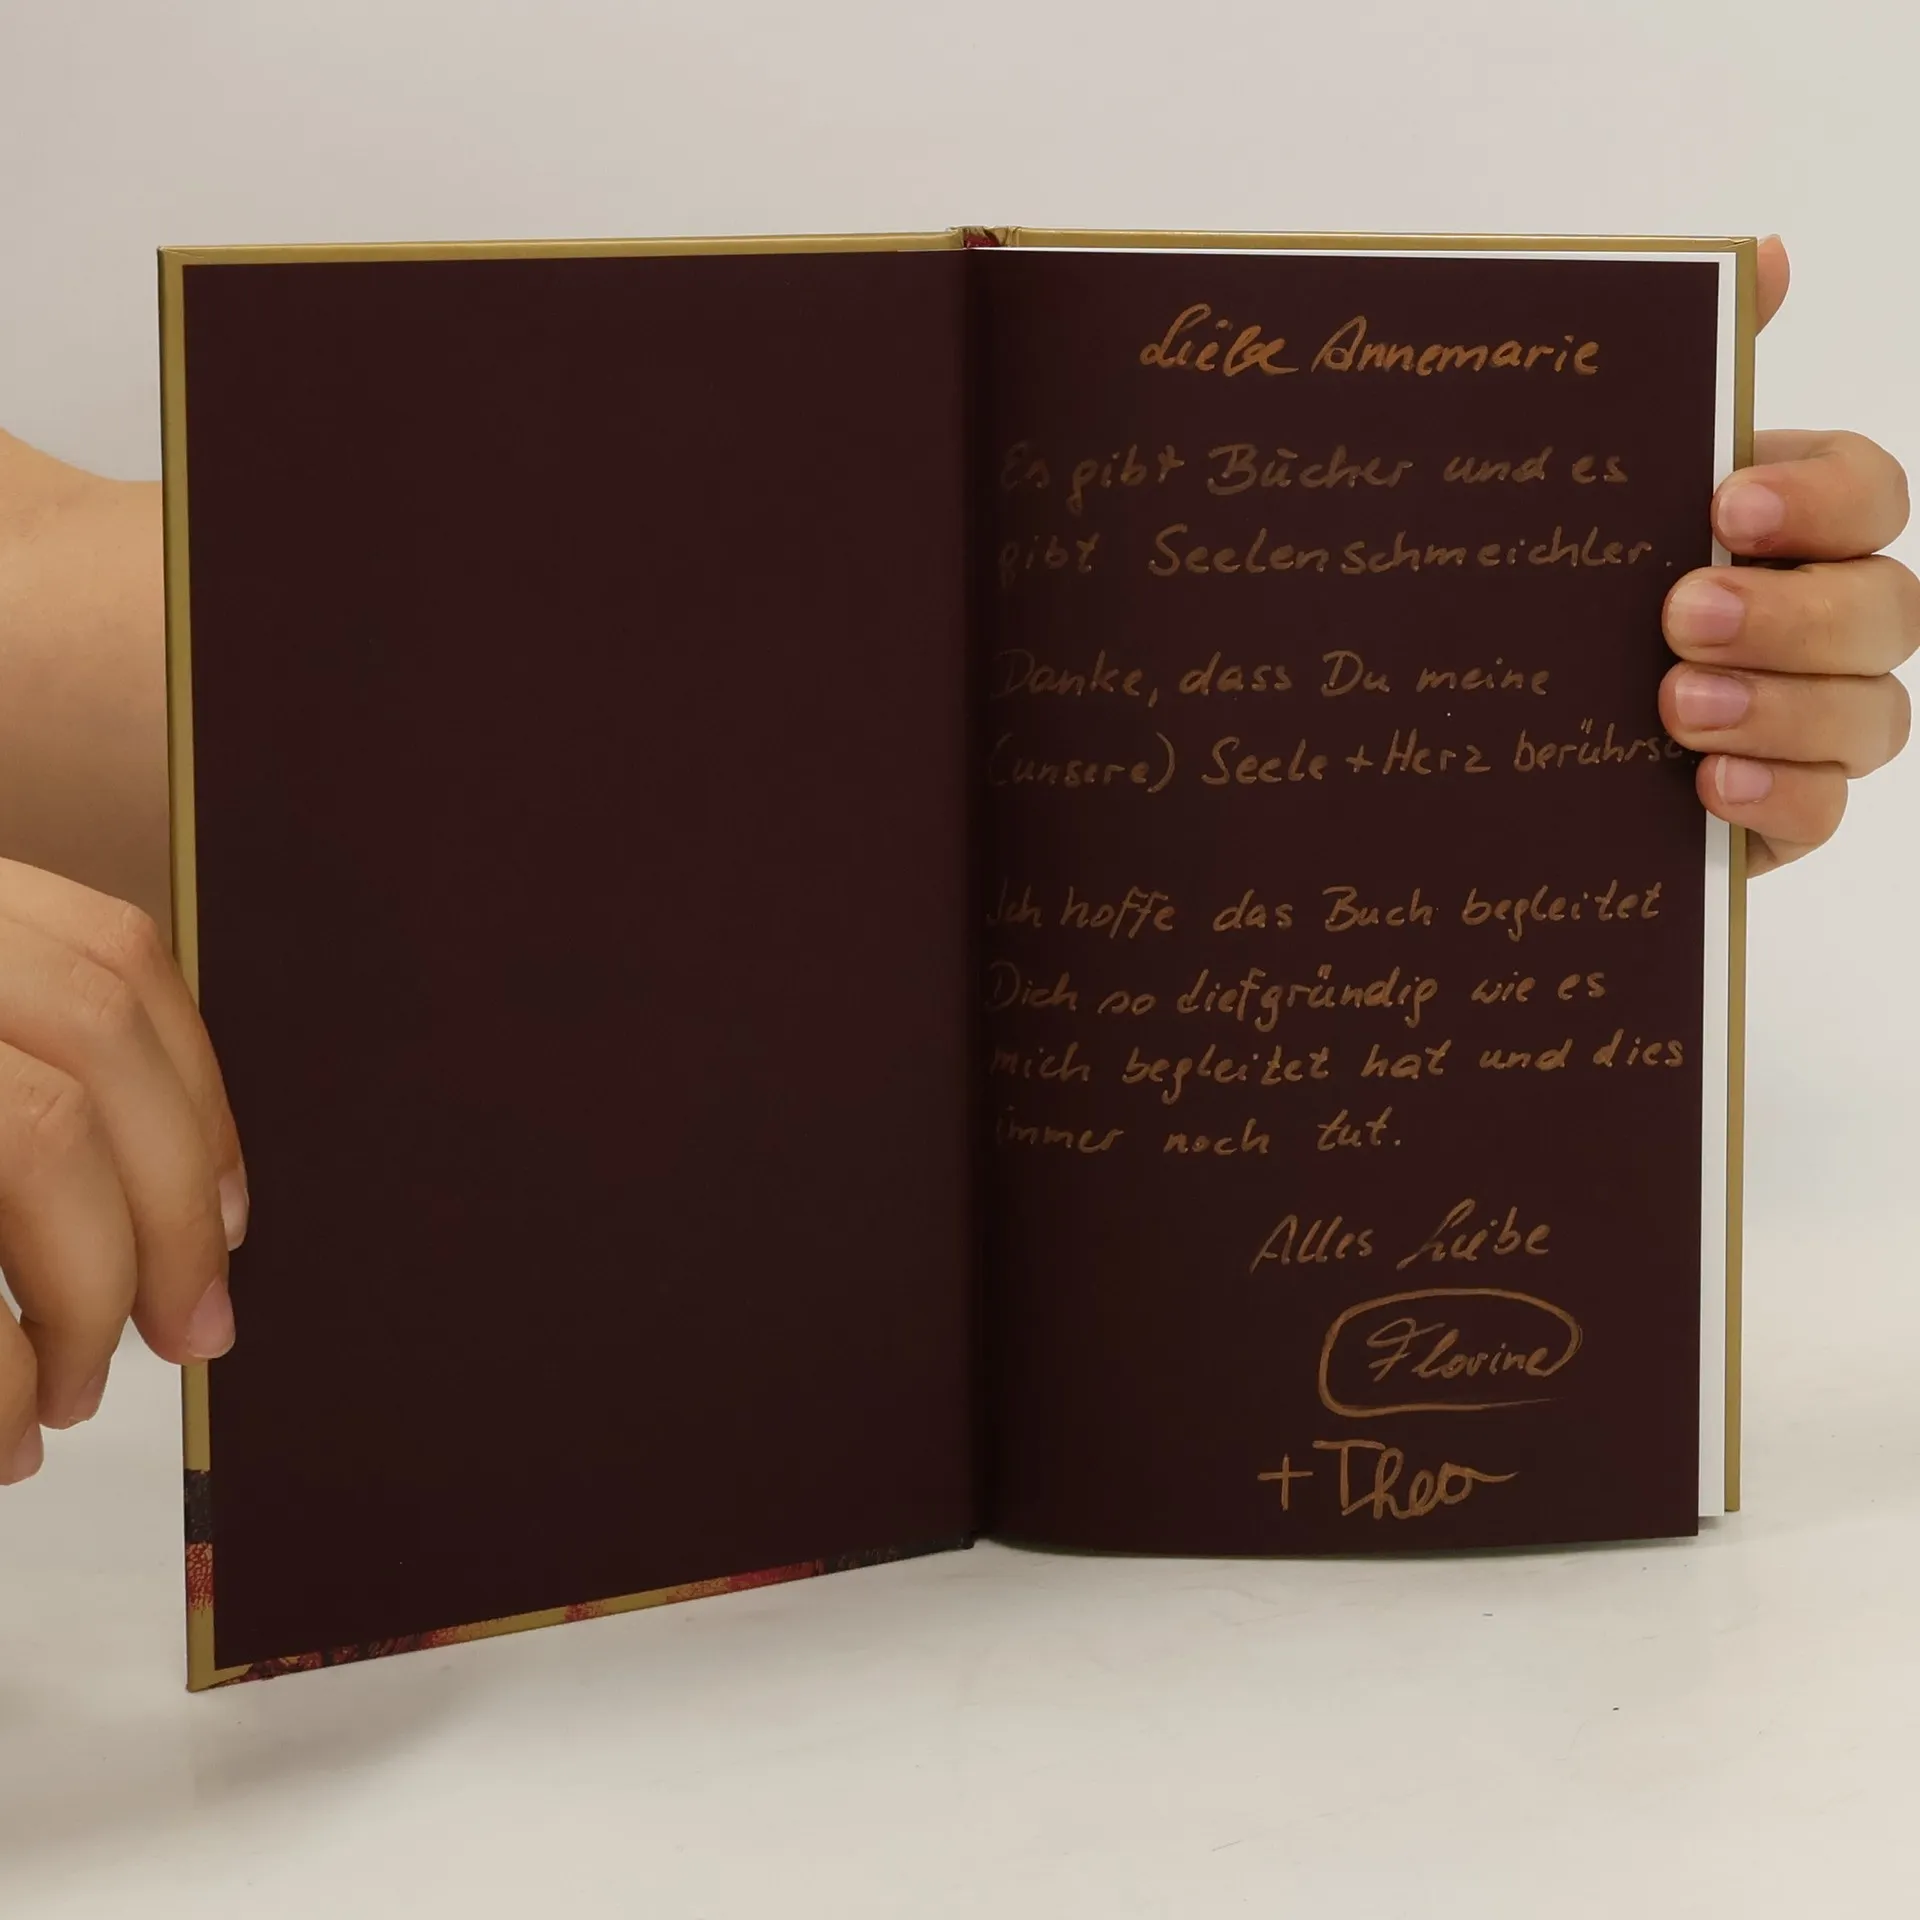 Liebe Annemarie
Es gibt Bücher und es
gibt Seelenschmeichler.
Danke, dass Du meine
(unsere) Seele + Herz berührst.
Ich hoffe das Buch begleitet
Dich so tiefgründig wie es
mich begleitet hat und dies
immer noch tut.
Alles Liebe
Florine
+ Theo